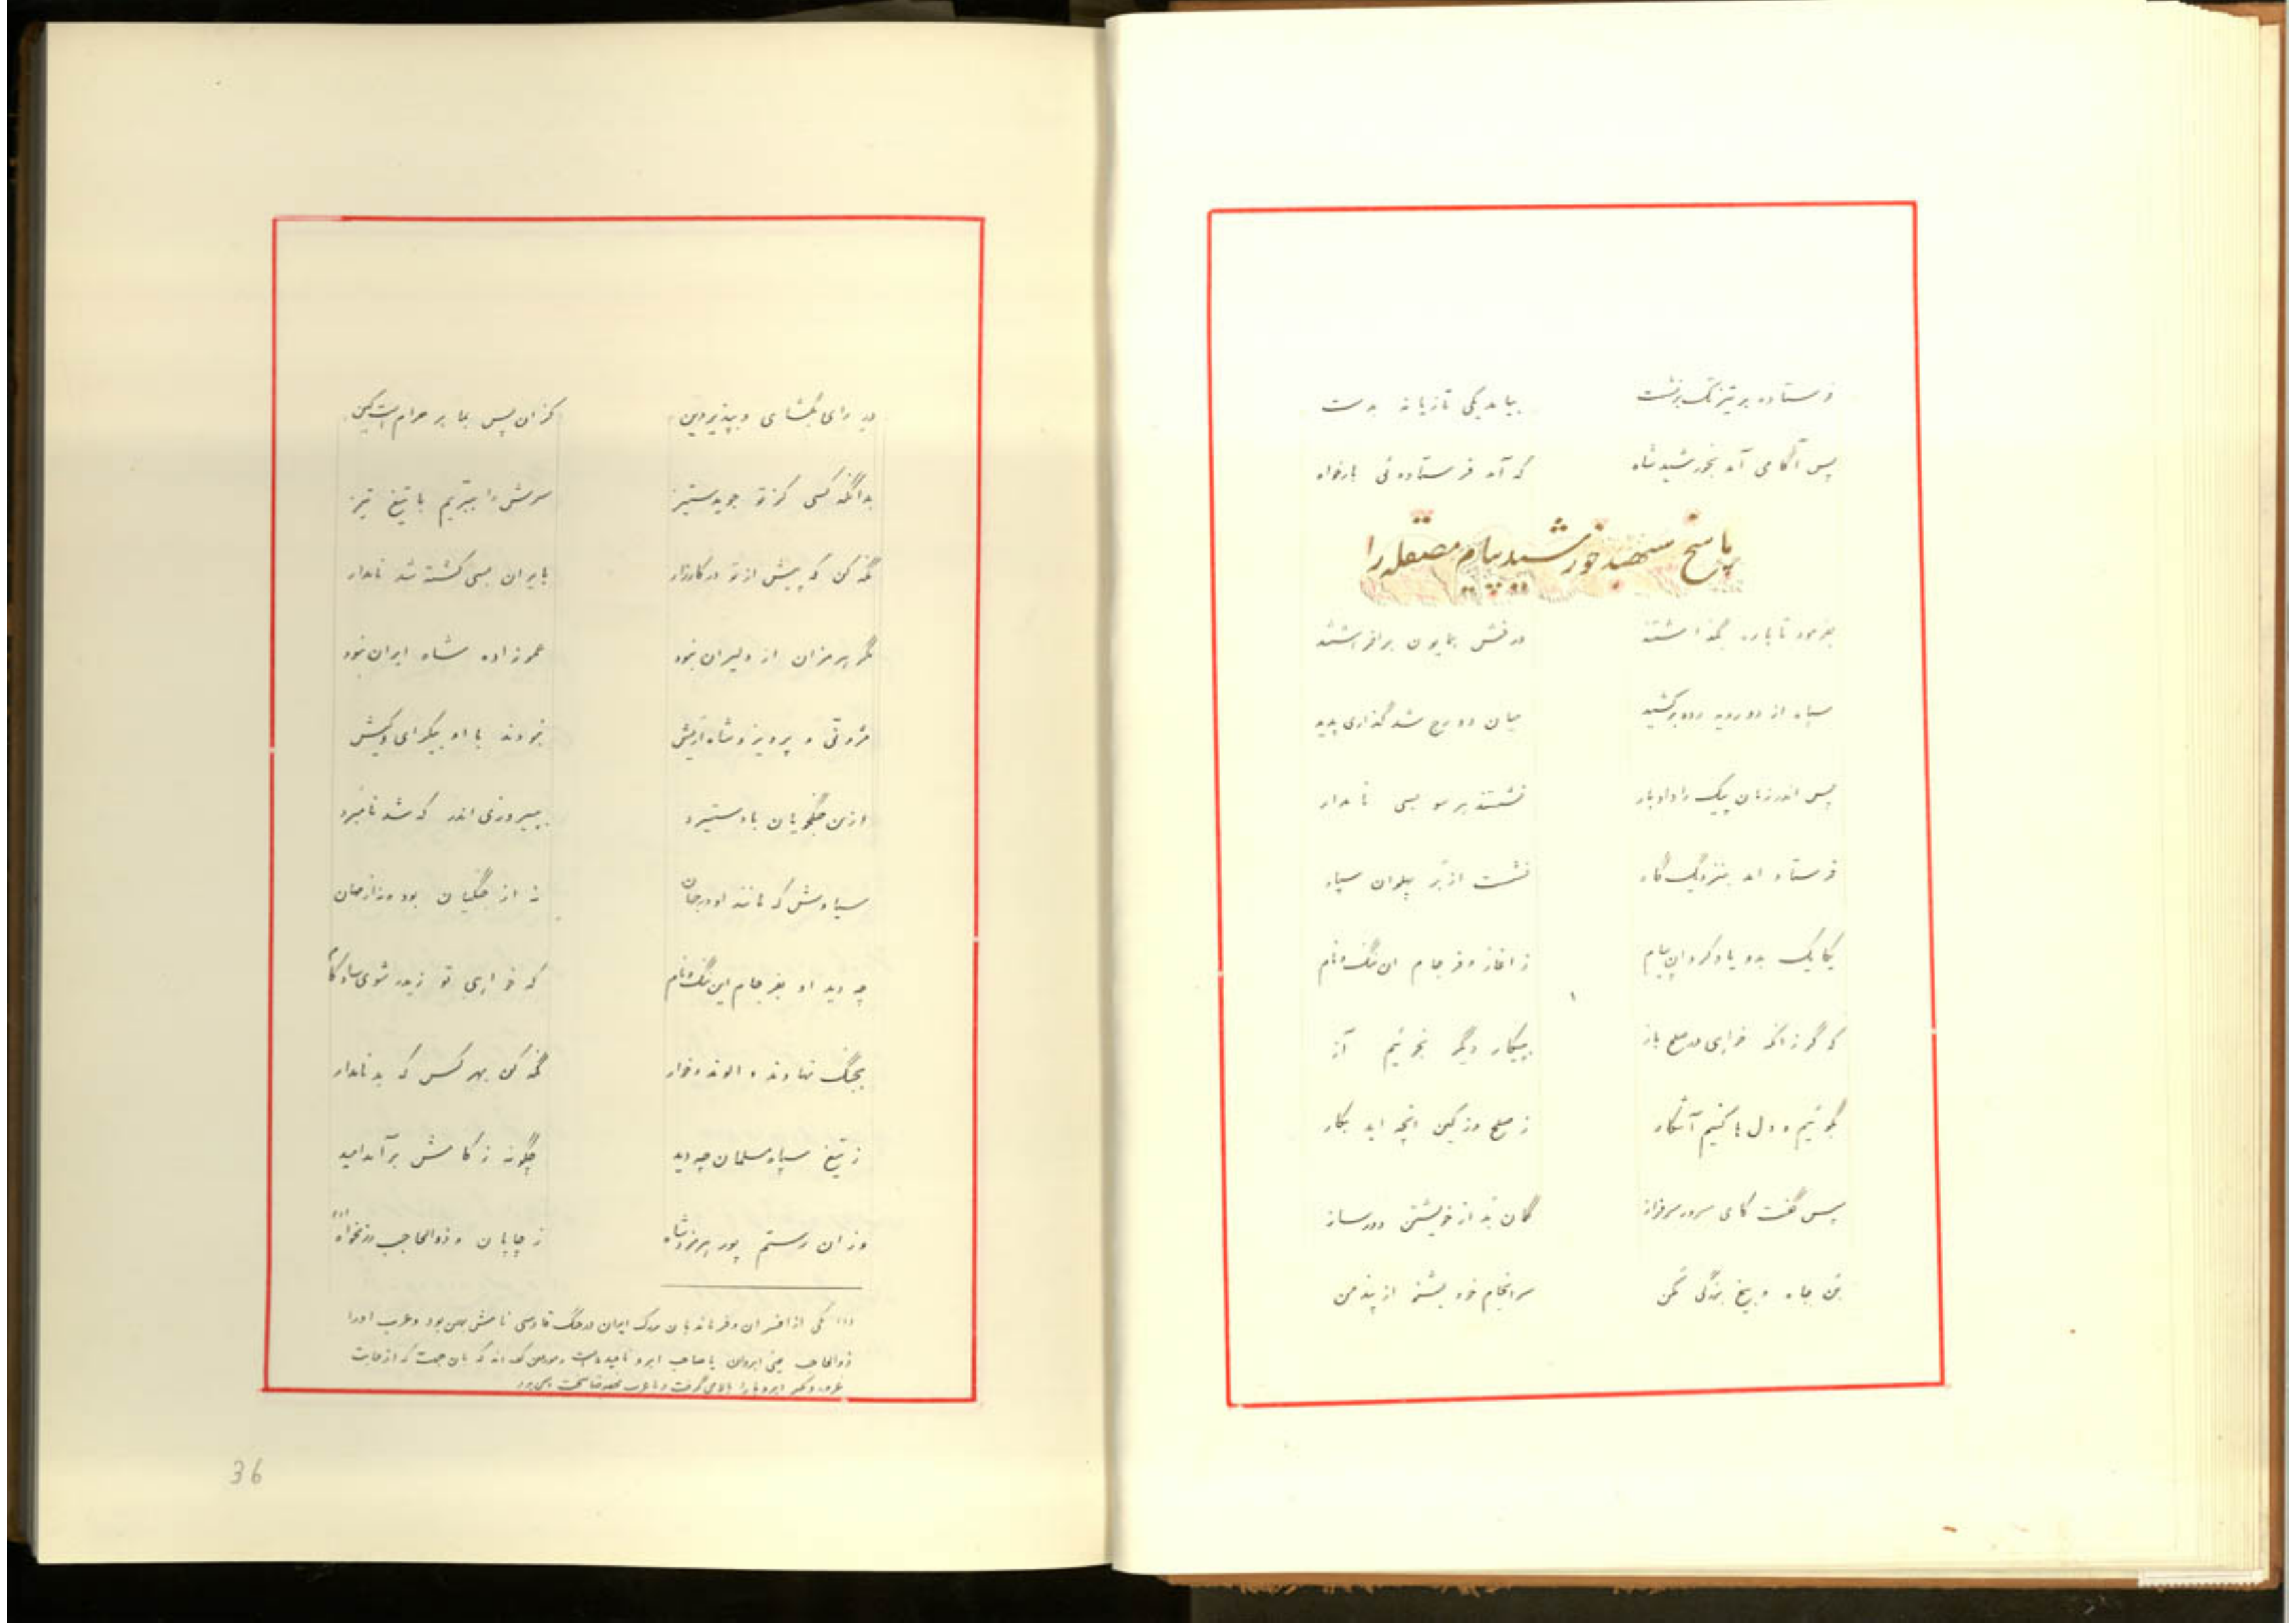 فرستاده بر تیزتک برنشست
بیامد یکی تازیانه بدست
پس آگاهی آمد بخورشید شاه
که آمد فرستاده‌ئی بارخواه
پاسخ سپهبد خورشید پیام مصقله را
بفرمود تا بارگه داشتند
درفش همایون برافراشتند
سپاه از دو رویه رده برکشید
میان دو رج شد گذاری پدید
پس اندر زمان پیک را داد بار
نشستند هر سو بسی نامدار
فرستاده آمد بنزدیک گاه
نشست از بر پهلوان سپاه
یکایک بدو یاد کرد آن پیام
ز آغاز و فرجام آن ننگ و نام
که گر زانکه خواهی در صلح باز
پیکار دیگر نجوئیم آز
بگوئیم و دل ها کنیم آشکار
ز صلح وز کین آنچه اید بکار
پس گفت کای سرور سرفراز
گمان بد از خویشتن دور ساز
بن جاه و بیخ بزرگی مکن
سرانجام خود بشنو از پند من
در رای بگشای و بپذیر دین
کزان پس بما بر حرام است کین
بدانگه کسی کز تو جوید ستیز
سرش را ببریم با تیغ تیز
نگه کن که پیش از تو در کارزار
بایران بسی کشته شد نامدار
مگر هرمزان از دلیران نبود
عموزاده شاه ایران نبود
و پرویز و شاه اریش
نبودند با او بیکرای و کیش
ازین جنگجویان باد ستیرد
بپیروزی اندر که شد نامبرد
سیاوش که مانند او در جهان
نه از جنگیان بود و نه از مهان
چه دید او بفرجام این ننگ و نام
که خواهی تو زیدر شوی شادکام
بجنگ نهاوند و الوند و خوار
نگه کن بهر کس که بد نامدار
ز تیغ سپاه مسلمان چه دید
چگونه ز کامش برآمد امید
وزان رستم پور هرمزد شاه
ز جاپان و ذوالحاجب رزمخواه (۱)
(۱) یکی از افسران و فرماندهان بزرگ ایران در جنگ قادسی نامش بهمن بود و عرب اورا
ذوالحاجب یعنی ابروان یا صاحب ابرو نامیده است که بان جهت که از غایت
غرور و تکبر ابروها را بالا می گرفت و با عرب سخت می بود
36